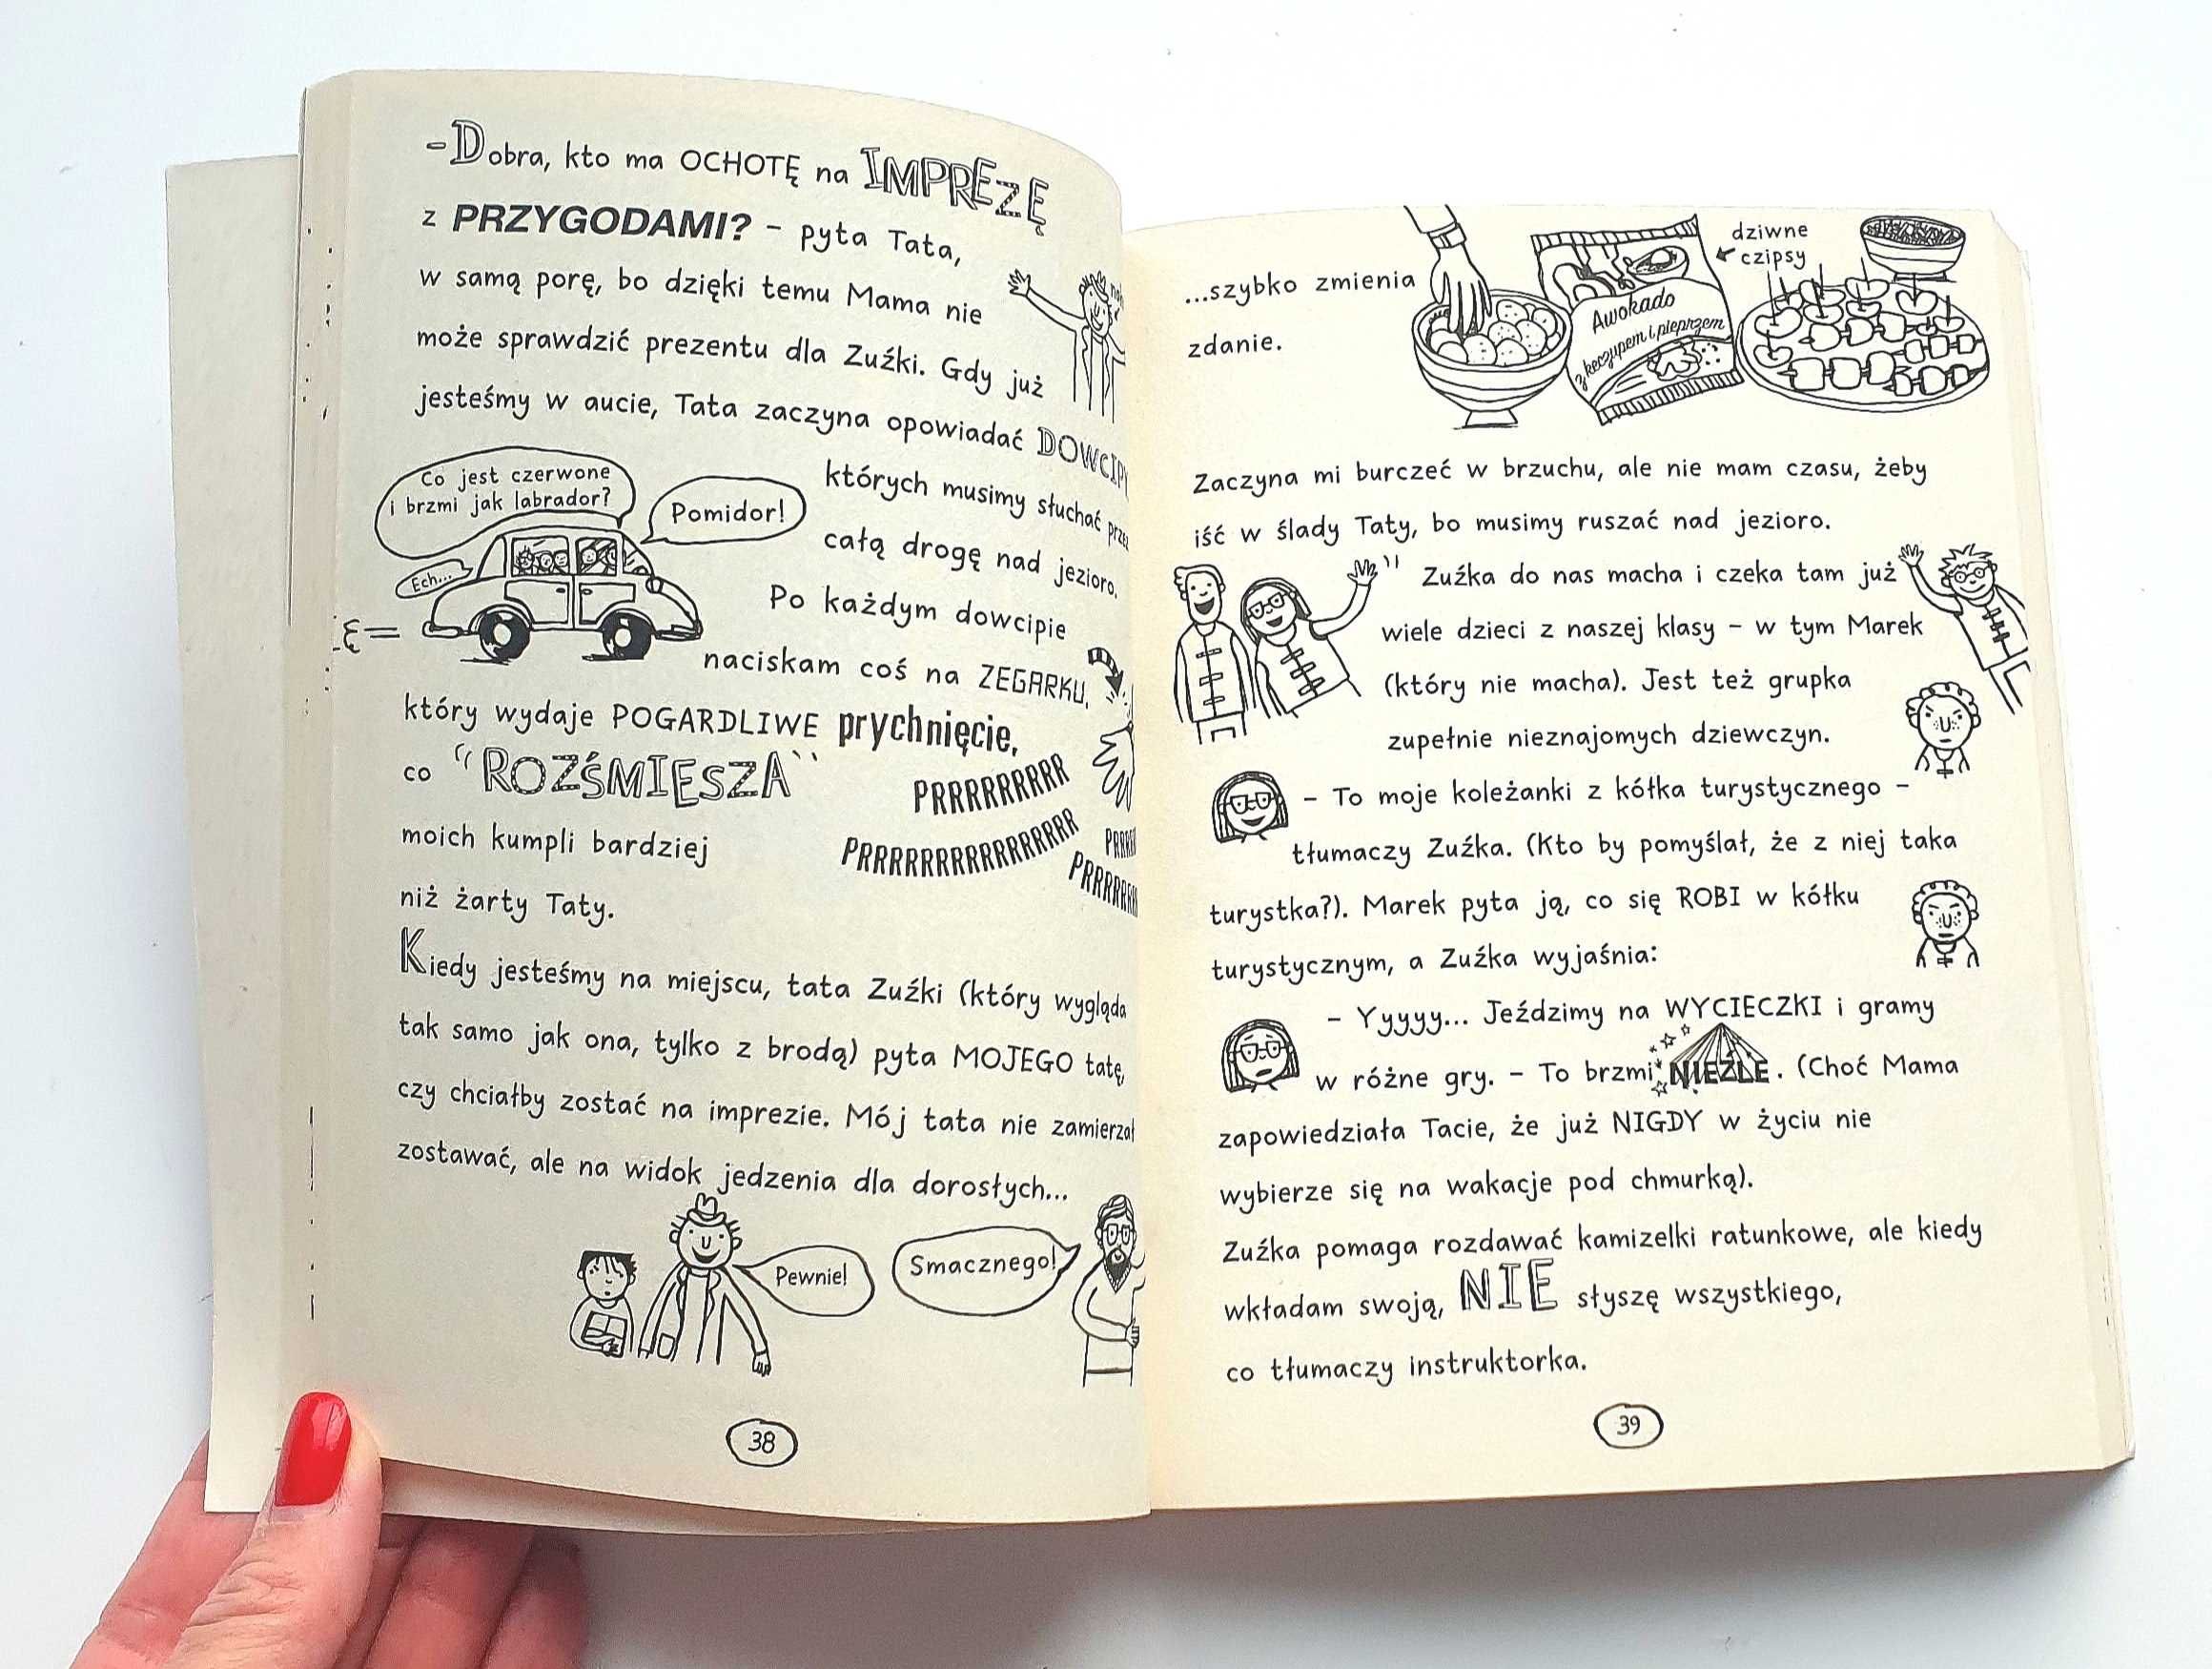 -Dobra, kto ma OCHOTĘ na IMPREZĘ
z PRZYGODAMI? - pyta Tata,
w samą porę, bo dzięki temu Mama nie
może sprawdzić prezentu dla Zuźki. Gdy już
jesteśmy w aucie, Tata zaczyna opowiadać DOWCIPY
Co jest czerwone
i brzmi jak labrador?
Pomidor!
Ech...
których musimy słuchać przez
całą drogę nad jezioro.
Po każdym dowcipie
naciskam coś na ZEGARKU,
który wydaje POGARDLIWE prychnięcie,
co "ROZŚMIESZA"
PRRRRRRRRR
PRRRRRRRRRRRRRRRR
moich kumpli bardziej
niż żarty Taty.
Kiedy jesteśmy na miejscu, tata Zuźki (który wygląda
tak samo jak ona, tylko z brodą) pyta MOJEGO tatę,
czy chciałby zostać na imprezie. Mój tata nie zamierzał
zostawać, ale na widok jedzenia dla dorosłych...
Pewnie!
Smacznego!
38
...szybko zmienia
zdanie.
Awokado
z keczupem i pieprzem
dziwne
czipsy
Zaczyna mi burczeć w brzuchu, ale nie mam czasu, żeby
iść w ślady Taty, bo musimy ruszać nad jezioro.
Zuźka do nas macha i czeka tam już
wiele dzieci z naszej klasy - w tym Marek
(który nie macha). Jest też grupka
zupełnie nieznajomych dziewczyn.
- To moje koleżanki z kółka turystycznego -
tłumaczy Zuźka. (Kto by pomyślał, że z niej taka
turystka?). Marek pyta ją, co się ROBI w kółku
turystycznym, a Zuźka wyjaśnia:
- Yyyyy... Jeździmy na WYCIECZKI i gramy
w różne gry. - To brzmi NIEŹLE. (Choć Mama
zapowiedziała Tacie, że już NIGDY w życiu nie
wybierze się na wakacje pod chmurką).
Zuźka pomaga rozdawać kamizelki ratunkowe, ale kiedy
wkładam swoją, NIE słyszę wszystkiego,
co tłumaczy instruktorka.
39